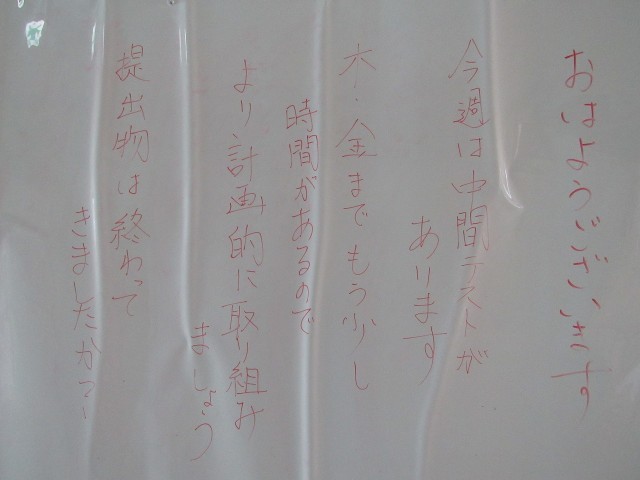 おはようございきす
今週は中間テストが
あります
木・金までもう少し
時間があるので
より計画的に取り組み
ましょう
提出物は終わって
きましたか?